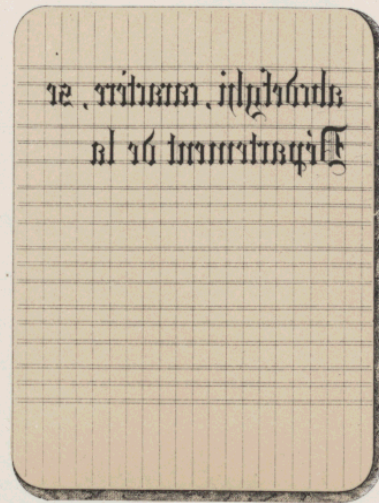 abcdefghi, caractère, se
Département de la